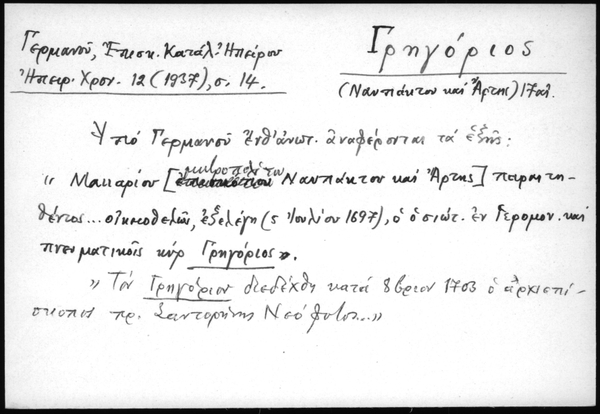 Γερμανοῦ, Ἐπισκ. Κατάλ. Ἠπείρου
Ἠπειρ. Χρον. 12 (1937), σ. 14.
Γρηγόριος
(Ναυπάκτου καί Ἄρτης) 17 αἰ.
Ὑπό Γερμανοῦ ἔνθ' ἀνωτ. ἀναφέρονται τά ἑξῆς:
"Μακαρίου [μητροπολίτου Ναυπάκτου καί Ἄρτης] παραιτη-
θέντος... οἰκειοθελῶς, ἐξελέγη (5 Ἰουλίου 1697), ὁ ὁσιώτ. ἐν Ιερομον. καί
πνευματικοῖς κύρ Γρηγόριος».
"Τόν Γρηγόριον διεδέχθη κατά 8βριον 1703 ὁ ἀρχιεπί-
σκοπος πρ. Σαντορήνης Νεόφυτος..."